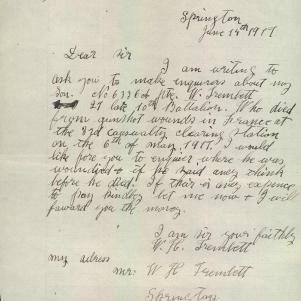 Springton
June 14th 1917
Dear Sir
I am writing to
ask you to make enquirers about my
Son. No 6336 of Pte. W. Tremlett
£1 late 10th Battalion. Who died
from gunshot wounds in France at
the 3rd causualty clearing station
on the 6th of May, 1917. I would
like for you to enquer where he was
wounded & if he said any think
before he died. If thar is any expence
to pay kindley let me now & I will
foward you the money.
I am Sir your faithly
W. H. Tremlett
my adress
mr. W H Tremlett
Springton